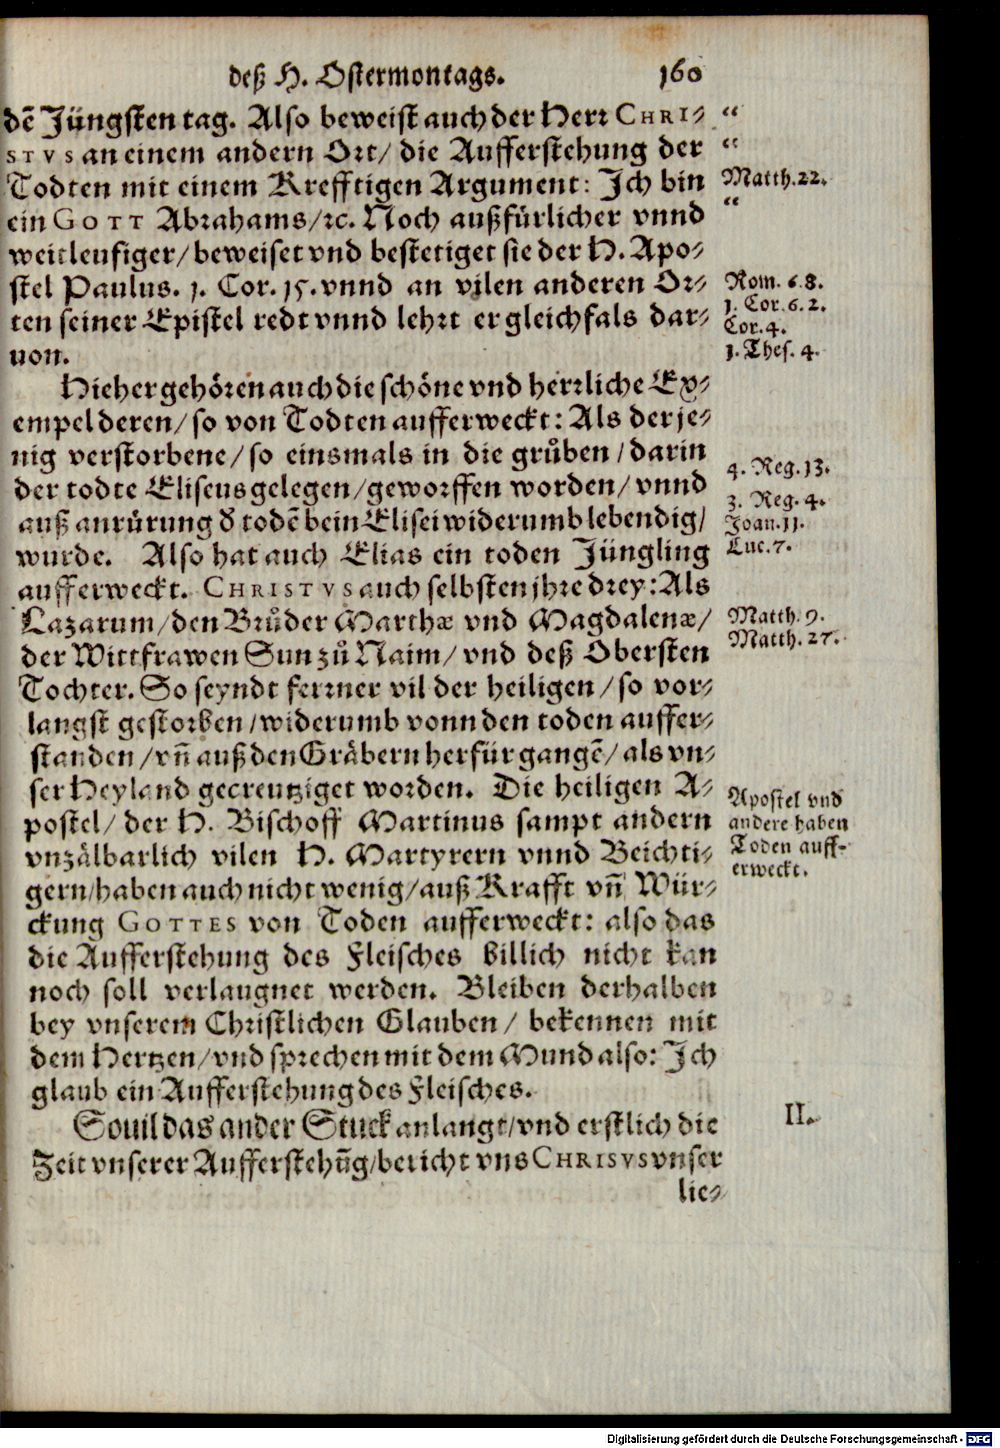 deß H. Ostermontags. 160
dẽ Jüngsten tag. Also beweist auch der Herr CHRI- “
STVS an einem andern Ort/ die Aufferstehung der “
Todten mit einem Krefftigen Argument: Ich bin Matth.22.
ein GOTT Abrahams/ ꝛc. Noch außfürlicher vnnd “
weitleufiger/ beweiset vnd bestetiget sie der H. Apo-
stel Paulus. 1. Cor. 15. vnnd an vilen anderen Or- Rom. 6.8.
1. Cor. 6. 2.
ten seiner Epistel redt vnnd lehrt er gleichfals dar- Cor. 4.
uon. 1. Thes. 4.
Hieher gehören auch die schöne vnd herrliche Ex-
empel deren/ so von Todten aufferweckt: Als der je-
nig verstorbene/ so einsmals in die gruͤben/ darin 4. Reg. 13.
der todte Eliseus gelegen/ geworffen worden/ vnnd 3. Reg. 4.
auß anrürung d̕ todẽ bein Elisei widerumb lebendig/ Joan. 11.
wurde. Also hat auch Elias ein toden Jüngling Luc. 7.
aufferweckt. CHRISTVS auch selbsten jhre drey: Als
Lazarum/ den Bruͤder Marthæ vnd Magdalenæ/ Matth. 9.
der Wittfrawen Sun zuͦ Naim/ vnd deß Obersten Matth. 27.
Tochter. So seyndt ferrner vil der heiligen/ so vor-
langst gestorben/ widerumb vonn den toden auffer-
standen/ vñ auß den Gräbern herfür gangẽ/ als vn-
ser Heyland gecreutziget worden. Die heiligen A-
postel/ der H. Bischoff Martinus sampt andern
vnzälbarlich vilen H. Martyrern vnnd Beichti-
gern/ haben auch nicht wenig/ auß Krafft vñ Wür-
ckung GOTTES von Toden aufferweckt: also das
die Aufferstehung des Fleisches billich nicht kan
noch soll verlaugnet werden. Bleiben derhalben
bey vnserem Christlichen Glauben/ bekennen mit
dem Hertzen/ vnd sprechen mit dem Mund also: Ich
glaub ein Aufferstehung des Fleisches.
Apostel vnd
andere haben
Toden auff-
erweckt.
Souil das ander Stuck anlangt/ vnd erstlich die II.
Zeit vnserer Aufferstehũg/ bericht vns CHRISVS vnser
lie-
Digitalisierung gefördert durch die Deutsche Forschungsgemeinschaft - DFG